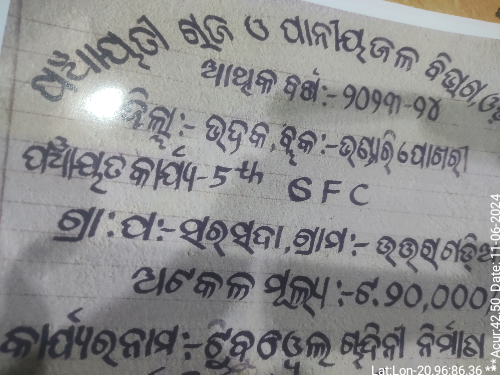 ପଞ୍ଚାୟତୀ ରାଜ ଓ ପାନୀୟଜଳ ବିଭାଗ,
ଆର୍ଥିକ ବର୍ଷ:- ୨୦୨୩-୨୪
ଜିଲ୍ଲା:- ଭଦ୍ରକ, ବ୍ଲକ:- ଭଣ୍ଡାରି ପୋଖରୀ
ପଞ୍ଚାୟତ କାର୍ଯ୍ୟ- 5th SFC
ଗ୍ରା:ପ:- ସରସଦା, ଗ୍ରାମ:-
ଅଟକଳ ମୂଲ୍ୟ:- ଟ.୨୦,୦୦୦
କାର୍ଯ୍ୟର ନାମ:- ଟୁବଓ୍ବେଲ ନିର୍ମାଣ
Lat:Lon-20.96:86.36
**Acur:42.50 Date: 11-06-2024